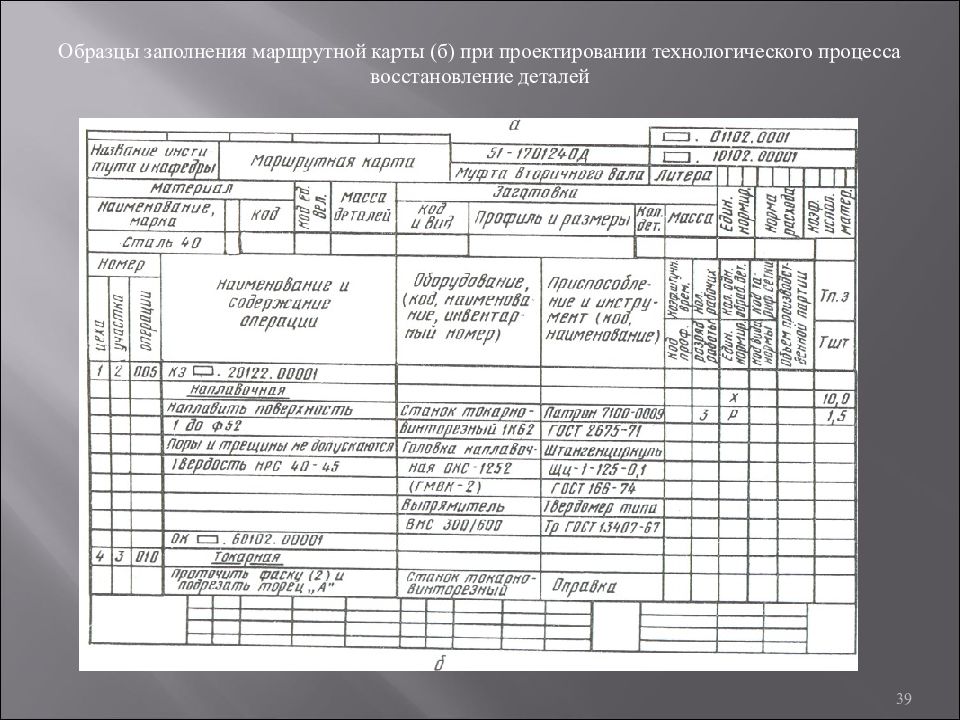 Образцы заполнения маршрутной карты (б) при проектировании технологического процесса
восстановление деталей
а
Название инсти
тута и кафедры
Маршрутная карта
51-1701240Д
Муфта вторичного вала
Литера
. 01102.0001
. 10102.00001
Материал
код ед. вел.
Масса деталей
Заготовка
Един. нормир.
Норма расхода
Коэф. испол. матер.
Наименование, марка
код
код и вид
Профиль и размеры
Кол. дет.
Масса
Сталь 40
Номер
цеха
участка
операции
Наименование и
содержание
операции
Оборудование,
(код, наименова-
ние, инвентар-
ный номер)
Приспособле-
ние и инстру-
мент (код,
наименование)
код проф.
разряд работы
кол. рабочих
един. нормир.
кол. одн. обраб. дет.
код вида нормы
код та-
риф. сетки
Объем производст-
венной партии
Тп.з
Тшт
1 2 005 КЭ . 20122.00001
Наплавочная х 10,0
Наплавить поверхность Станок токарно- Патрон 7100-0009 3 Р 1,5
1 до Ф52 винторезный 1К62 ГОСТ 2675-71
Поры и трещины не допускаются Головка наплавоч- Штангенциркуль
Твердость HRC 40-45 ная ОКС-1252 ЩЦ-1-125-0,1
(ГМВК-2) ГОСТ 166-74
Выпрямитель Твердомер типа
ВМС 300/600 Тр ГОСТ 13407-67
ОК . 60102.00001
4 3 010 Токарная
Проточить фаску (2) и Станок токарно- Оправка
подрезать торец „А" винторезный
б
39